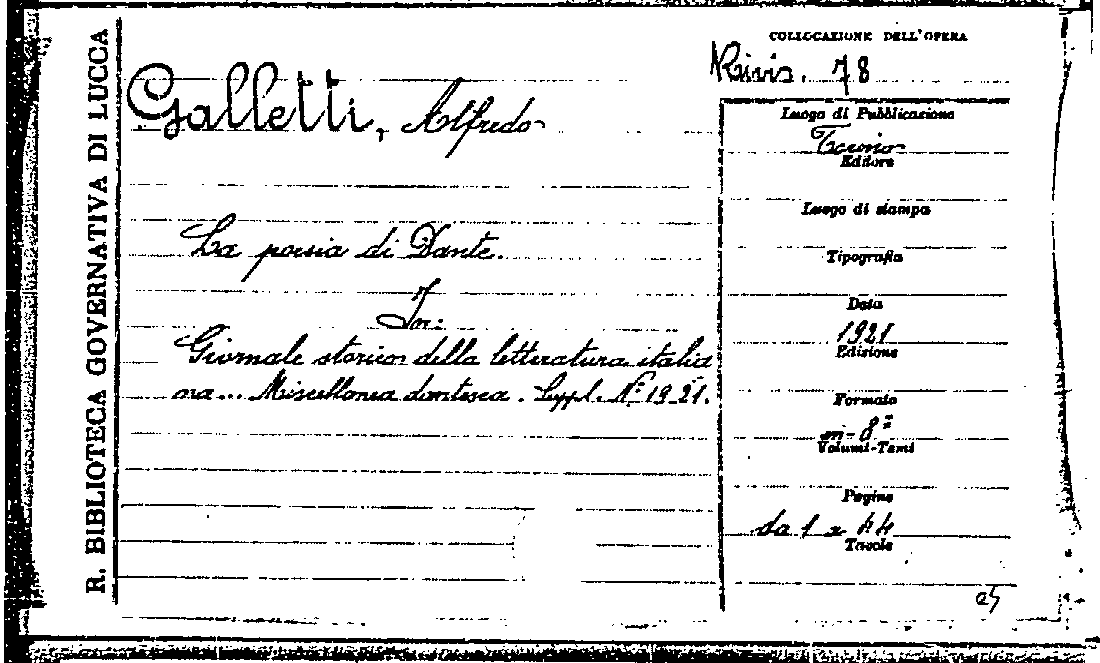 R. BIBLIOTECA GOVERNATIVA DI LUCCA
Galletti, Alfredo
La poesia di Dante.
In:
Giornale storico della letteratura italia
na... Miscellanea dantesca. Suppl. N.i 19-21.
COLLOCAZIONE DELL'OPERA
Rivis. 78
Luogo di Pubblicazione
Torino
Editore
Luogo di stampa
Tipografia
Data
1921
Edizione
Formato
in-8º
Volumi-Tomi
Pagine
da 1 a 44
Tavole